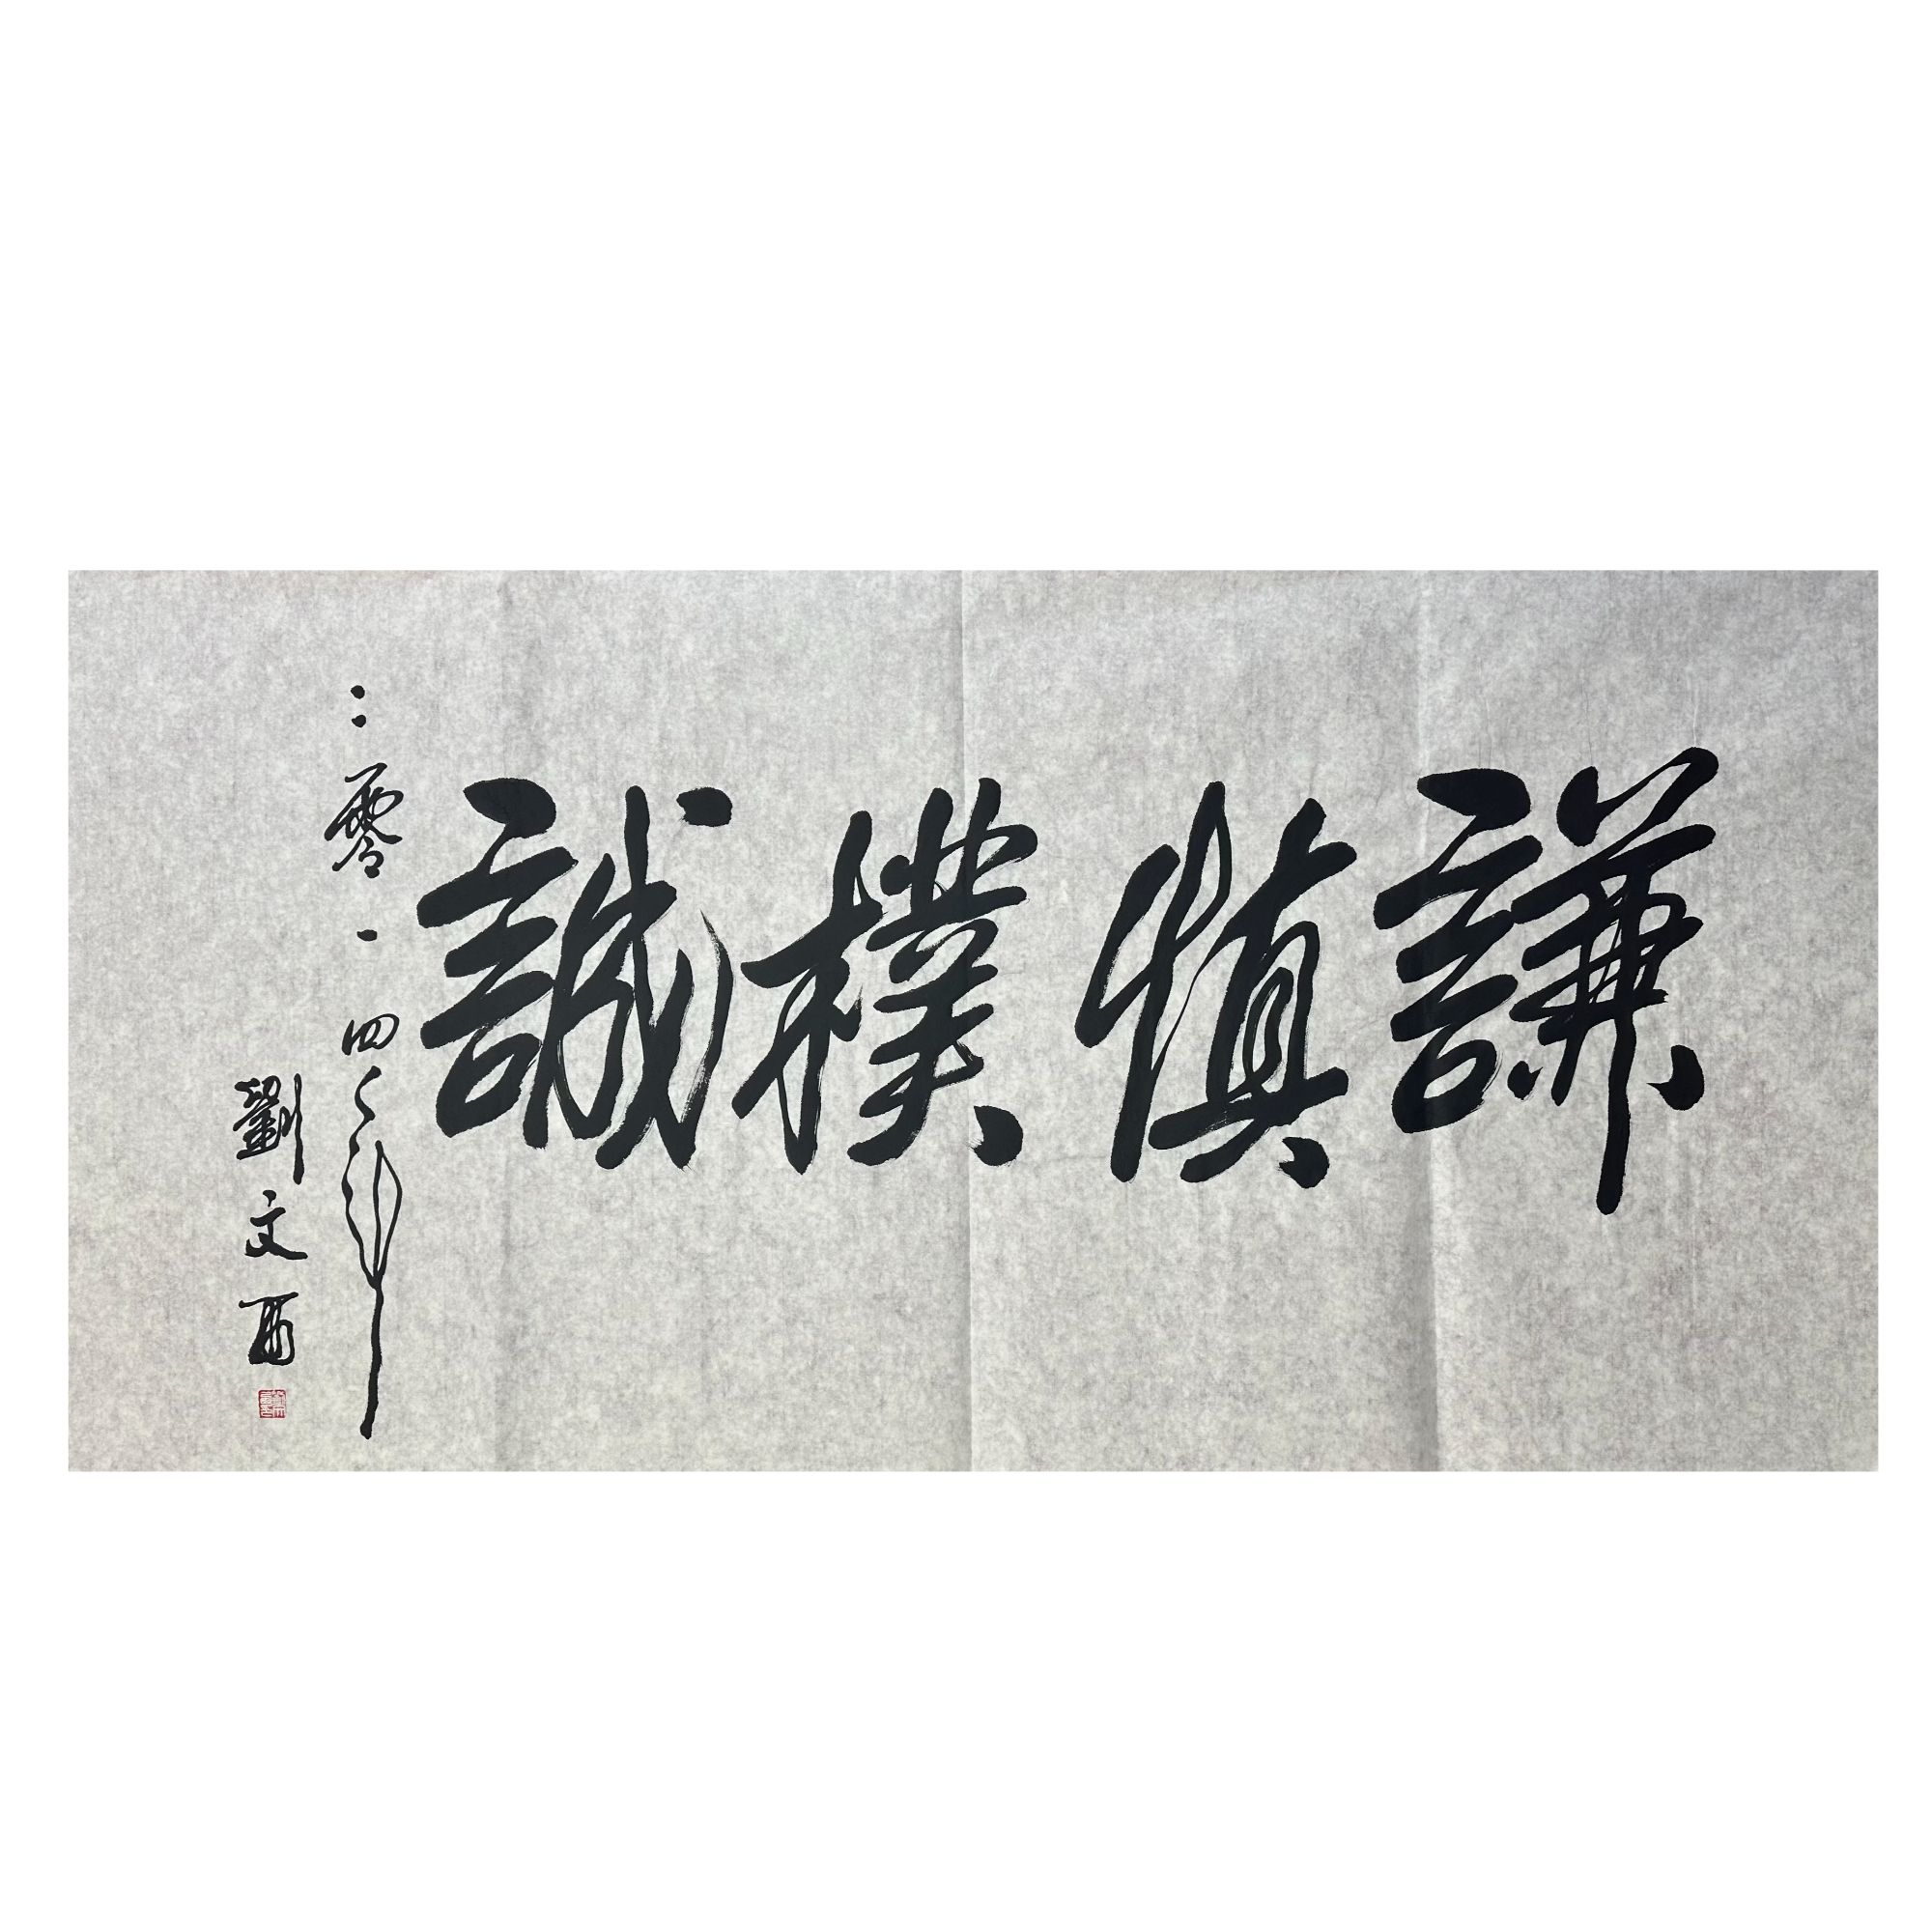 謙慎樸誠
二零一四年
劉文西